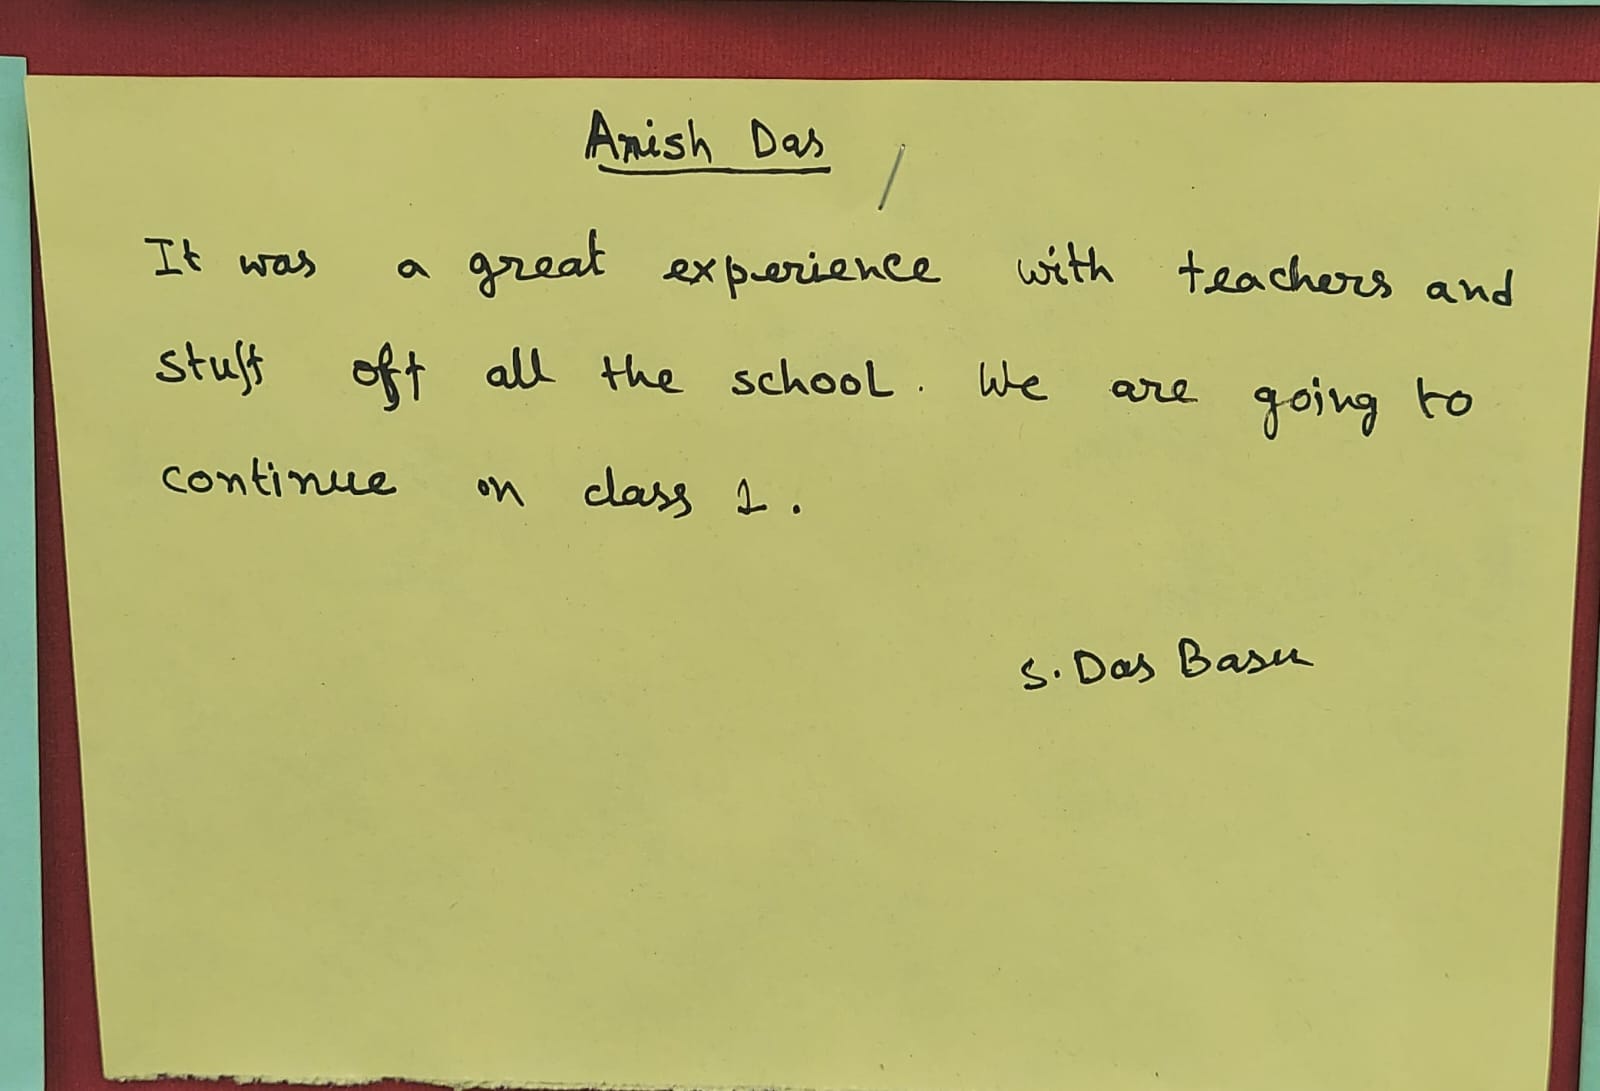 Anish Das
It was a great experience with teachers and
stuff off all the school. We are going to
continue on class 1.
S. Das Basu